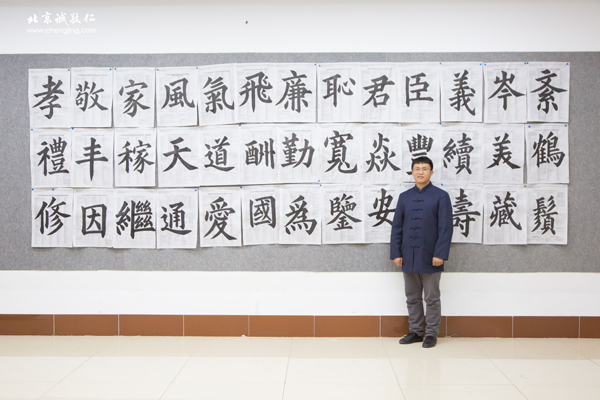 北京诚敬仁
www.chengjing.com
孝敬家風氣飛廉恥君臣義岑紊
禮丰稼天道酬勤寬焱豐續美鶴
修因繼通愛國爲鑒安壽藏鬚